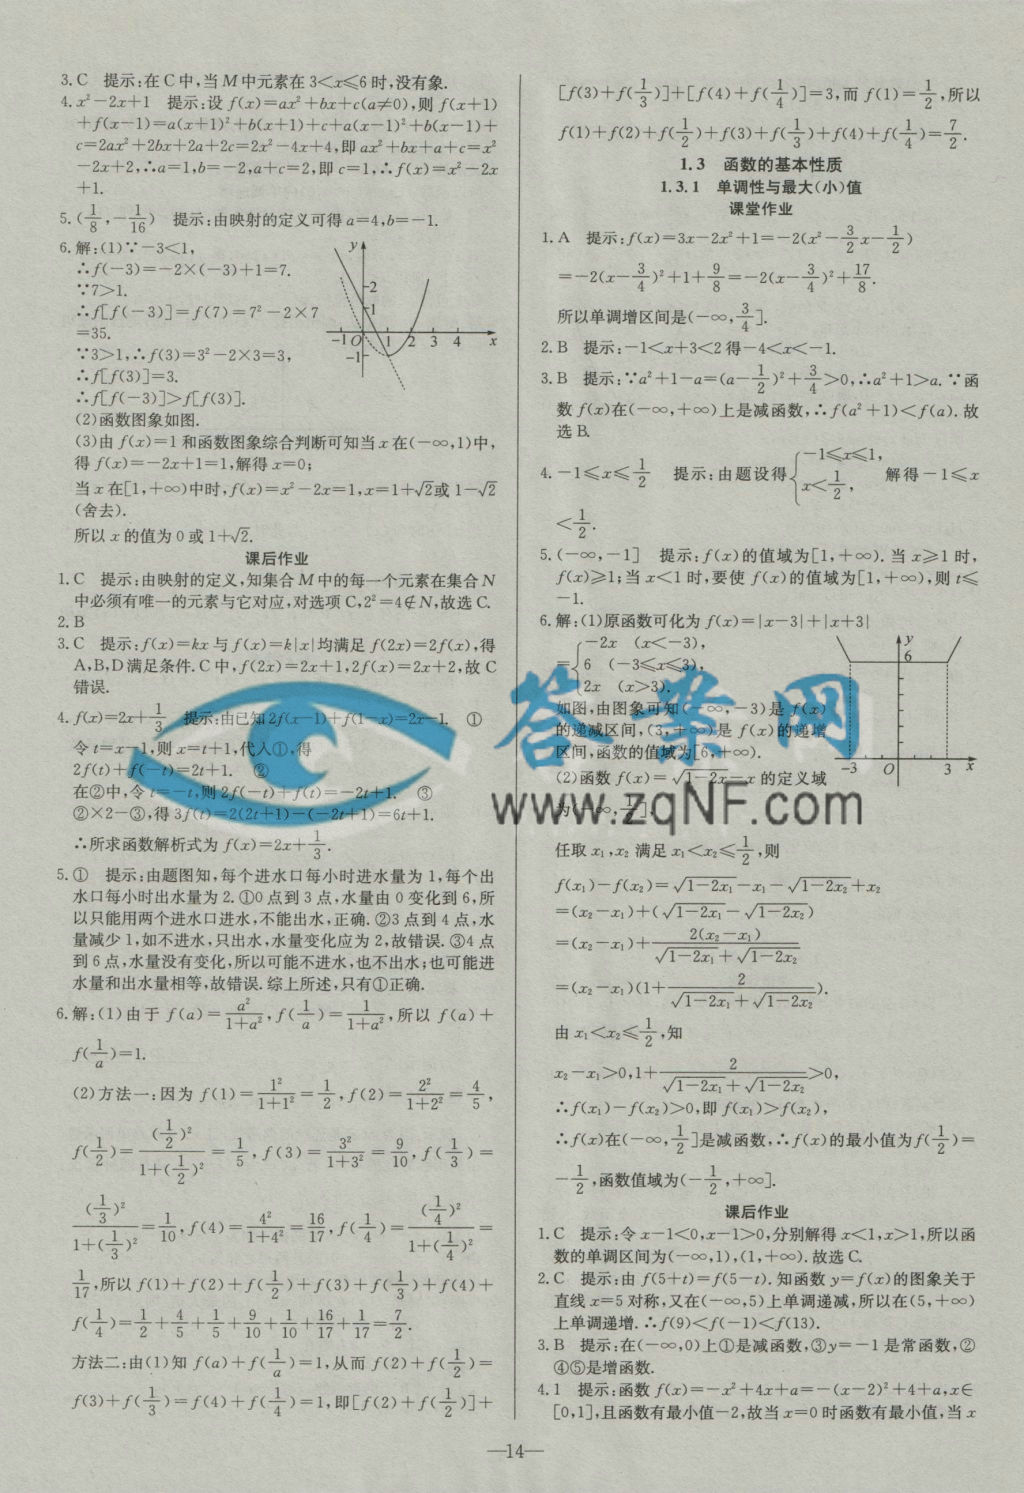 3. C　提示:在C中,当M中元素在3<x≤6时,没有象.
4. x²-2x+1　提示:设f(x)=ax²+bx+c(a≠0),则f(x+1)
+f(x-1)=a(x+1)²+b(x+1)+c+a(x-1)²+b(x-1)+
c=2ax²+2bx+2a+2c=2x²-4x+4,即ax²+bx+a+c=x²
-2x+2,∴a=1,b=-2,a+c=2,即c=1,∴f(x)=x²-2x
+1.
5. (1/8,-1/16)　提示:由映射的定义可得a=4,b=-1.
6. 解:(1)∵-3<1,
∴f(-3)=-2×(-3)+1=7.
∵7>1.
∴f[f(-3)]=f(7)=7²-2×7
=35.
∵3>1,∴f(3)=3²-2×3=3,
∴f[f(3)]=3.
∴f[f(-3)]>f[f(3)].
y
2
1
-1 O 1 2 3 4 x
-1
(2)函数图象如图.
(3)由f(x)=1和函数图象综合判断可知当x在(-∞,1)中,
得f(x)=-2x+1=1,解得x=0;
当x在[1,+∞)中时,f(x)=x²-2x=1,x=1+√2或1-√2
(舍去).
所以x的值为0或1+√2.
课后作业
1. C　提示:由映射的定义,知集合M中的每一个元素在集合N
中必须有唯一的元素与它对应,对选项C,2²=4∉N,故选C.
2. B
3. C　提示:f(x)=kx与f(x)=k|x|均满足f(2x)=2f(x),得
A,B,D满足条件.C中,f(2x)=2x+1,2f(x)=2x+2,故C
错误.
4. f(x)=2x+1/3　提示:由已知2f(x-1)+f(1-x)=2x-1.　①
令t=x-1,则x=t+1,代入①,得
2f(t)+f(-t)=2t+1.　②
在②中,令t=-t,则2f(-t)+f(t)=-2t+1.　③
②×2-③,得3f(t)=2(2t+1)-(-2t+1)=6t+1.
∴所求函数解析式为f(x)=2x+1/3.
5. ①　提示:由题图知,每个进水口每小时进水量为1,每个出
水口每小时出水量为2.①0点到3点,水量由0变化到6,所
以只能用两个进水口进水,不能出水,正确.②3点到4点,水
量减少1,如不进水,只出水,水量变化应为2,故错误.③4点
到6点,水量没有变化,所以可能不进水,也不出水;也可能进
水量和出水量相等,故错误.综上所述,只有①正确.
6. 解:(1)由于f(a)=a²/(1+a²),f(1/a)=1/(1+a²),所以f(a)+
f(1/a)=1.
(2)方法一:因为f(1)=1²/(1+1²)=1/2,f(2)=2²/(1+2²)=4/5,
f(1/2)=(1/2)²/(1+(1/2)²)=1/5,f(3)=3²/(1+3²)=9/10,f(1/3)=
(1/3)²/(1+(1/3)²)=1/10,f(4)=4²/(1+4²)=16/17,f(1/4)=(1/4)²/(1+(1/4)²)=
1/17,所以f(1)+f(2)+f(1/2)+f(3)+f(1/3)+f(4)+
f(1/4)=1/2+4/5+1/5+9/10+1/10+16/17+1/17=7/2.
方法二:由(1)知f(a)+f(1/a)=1,从而f(2)+f(1/2)=
f(3)+f(1/3)=f(4)+f(1/4)=1,即[f(2)+f(1/2)]+
[f(3)+f(1/3)]+[f(4)+f(1/4)]=3,而f(1)=1/2,所以
f(1)+f(2)+f(1/2)+f(3)+f(1/3)+f(4)+f(1/4)=7/2.
1.3　函数的基本性质
1.3.1　单调性与最大(小)值
课堂作业
1. A　提示:f(x)=3x-2x²+1=-2(x²-3/2x-1/2)
=-2(x-3/4)²+1+9/8=-2(x-3/4)²+17/8.
所以单调增区间是(-∞,3/4].
2. B　提示:-1<x+3<2得-4<x<-1.
3. B　提示:∵a²+1-a=(a-1/2)²+3/4>0,∴a²+1>a.∵函
数f(x)在(-∞,+∞)上是减函数,∴f(a²+1)<f(a).故
选B.
4. -1≤x≤1/2　提示:由题设得{-1≤x≤1, x<1/2,　解得-1≤x
<1/2.
5. (-∞,-1]　提示:f(x)的值域为[1,+∞).当x≥1时,
f(x)≥1;当x<1时,要使f(x)的值域为[1,+∞),则t≤
-1.
6. 解:(1)原函数可化为f(x)=|x-3|+|x+3|
={-2x　(x<-3),
6　(-3≤x≤3),
2x　(x>3).
如图,由图象可知(-∞,-3)是f(x)
的递减区间,(3,+∞)是f(x)的递增
区间,函数的值域为[6,+∞).
y
6
-3 O 3 x
(2)函数f(x)=√(1-2x)-x的定义域
为(-∞,1/2],
任取x₁,x₂满足x₁<x₂≤1/2,则
f(x₁)-f(x₂)=√(1-2x₁)-x₁-√(1-2x₂)+x₂
=(x₂-x₁)+(√(1-2x₁)-√(1-2x₂))
=(x₂-x₁)+2(x₂-x₁)/(√(1-2x₁)+√(1-2x₂))
=(x₂-x₁)(1+2/(√(1-2x₁)+√(1-2x₂))).
由x₁<x₂≤1/2,知
x₂-x₁>0,1+2/(√(1-2x₁)+√(1-2x₂))>0,
∴f(x₁)-f(x₂)>0,即f(x₁)>f(x₂),
∴f(x)在(-∞,1/2]是减函数,∴f(x)的最小值为f(1/2)=
-1/2,函数值域为(-1/2,+∞].
课后作业
1. C　提示:令x-1<0,x-1>0,分别解得x<1,x>1,所以函
数的单调区间为(-∞,1),(1,+∞).故选C.
2. C　提示:由f(5+t)=f(5-t).知函数y=f(x)的图象关于
直线x=5对称,又在(-∞,5)上单调递减,所以在(5,+∞)
上单调递增.∴f(9)<f(-1)<f(13).
3. B　提示:在(-∞,0)上①是减函数,③y=-1是常函数,②
④⑤是增函数.
4. 1　提示:函数f(x)=-x²+4x+a=-(x-2)²+4+a,x∈
[0,1],且函数有最小值-2,故当x=0时函数有最小值,当x
答案网
www.zqNF.com
—14—